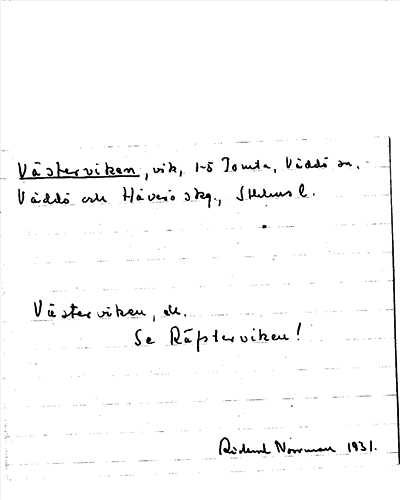 Västerviken, vik, 1-5 Tomta, Väddö sn.
Väddö och Häverö skg., Sthlms l.
Västerviken, dr.
Se Räfsterviken!
Rickard Norrman 1931.